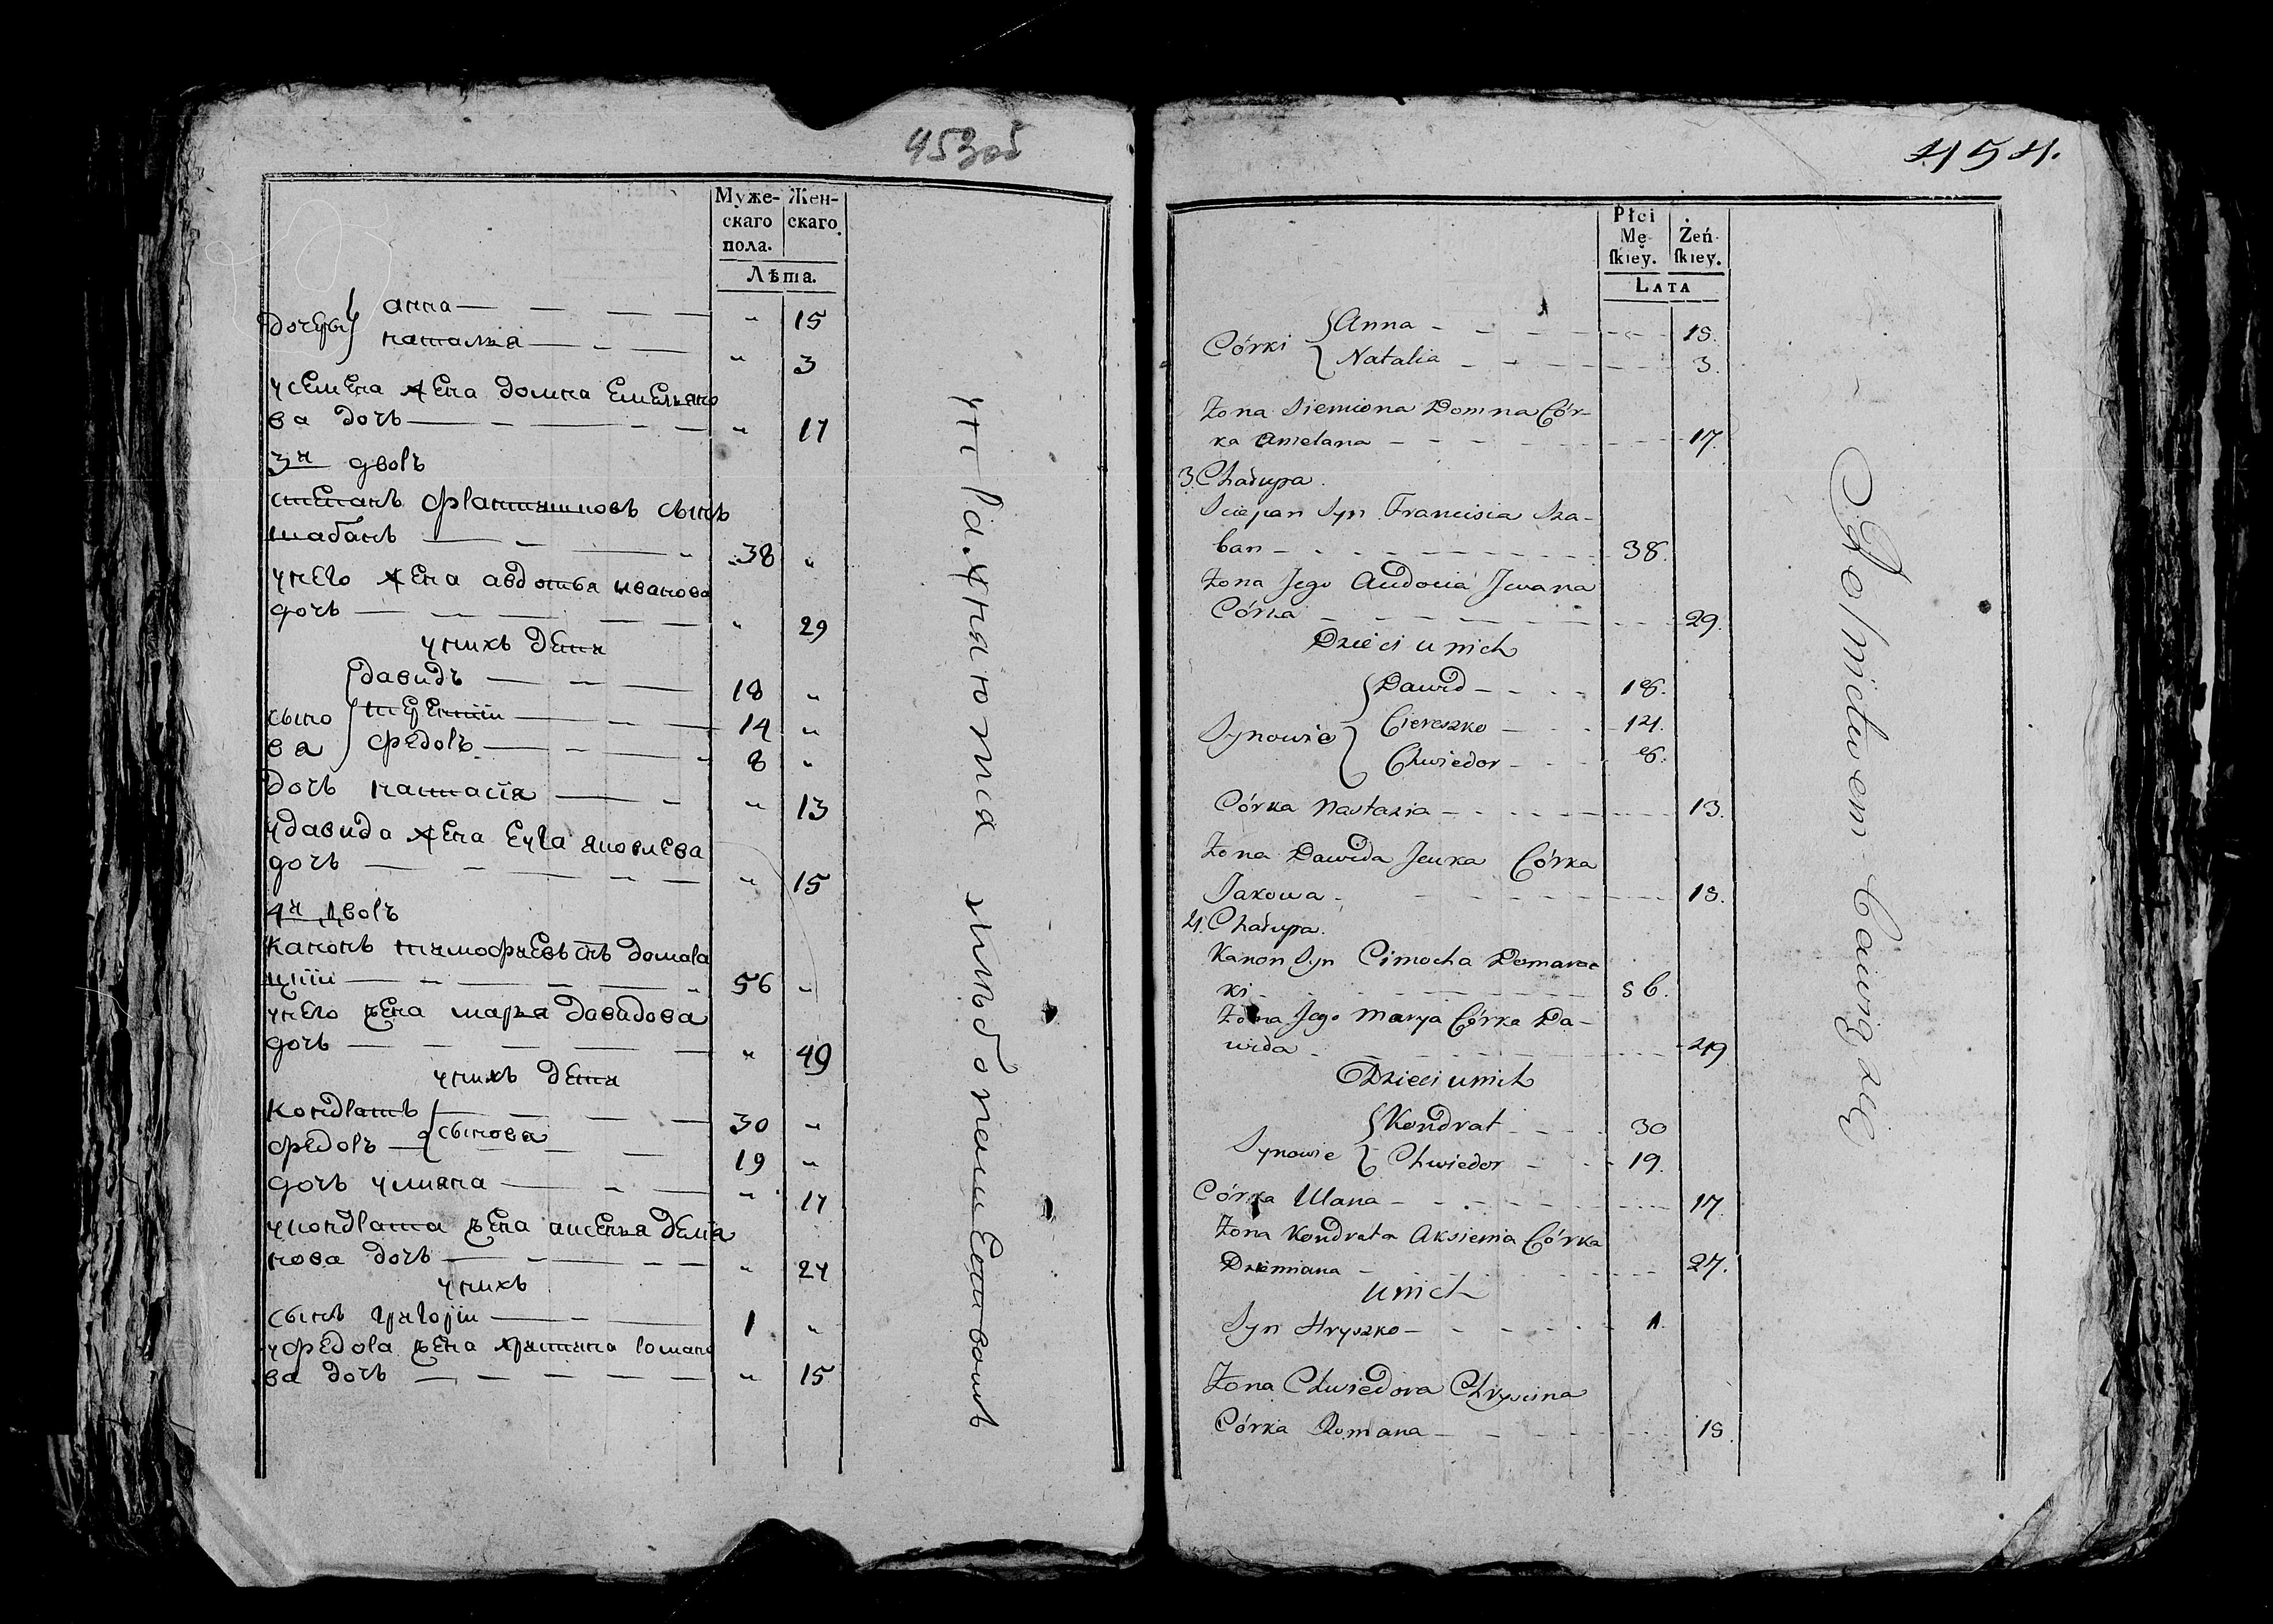 453об
Муже-
скаго
пола.
Жен-
скаго
Лѣта.
дочери
анна — — — — " 15
наталья — — — " 3
усемена жена домна емельяно
ва дочь — — — — " 17
3й дворъ
степанъ францышковъ сынъ
шабанъ — — — " 38 "
унего жена авдотья иванова
дочь — — — — " 29
унихъ дети
сыно
ва
давидъ — — — 18 "
терентiй — — — 14 "
федоръ — — — 8 "
дочь настасiя — — " 13
удавида жена евга яковлева
дочь — — — — " 15
4й дворъ
канонъ тимофѣевъ снъ домара
цкiй — — — — " 56 "
унего жена марья давидова
дочь — — — — — " 49
унихъ дети
кондратъ — — — — 30 "
федоръ — сынова — — 19 "
дочь улияна — — — " 17
укондрата жена аксенья демiя
нова дочь — — — — " 27
унихъ
сынъ григорiй — — — 1 "
уфедора жена христина романо
ва дочь — — — — — " 15
454.
Płci
Mę-
ſkiey.
Żeń-
ſkiey.
LATA
Córki
Anna - - - - - 15.
Natalia - - - - - 3.
Żona Siemiona Domna Cór-
ka Amelana - - - - - 17.
3. Chałupa.
Sciepan Syn Franciszka Sza-
ban - - - - - 38.
Żona Jego Audocia Jwana
Córka - - - - - 29.
Dzieci u nich
Synowie
Dawid - - - - 18.
Ciereszko - - - 14.
Chwiedor - - - 8.
Córka Nastazia - - - - - 13.
Żona Dawida Jeuka Córka
Jakowa - - - - - 15.
4. Chałupa.
Kanon Syn Cimocha Domarac
ki - - - - - 56.
Żona Jego Marya Córka Da-
wida - - - - - 49
Dzieci u nich
Synowie
Kondrat - - - 30
Chwiedor - - - 19.
Córka Ulana - - - - - 17.
Żona Kondrata Aksienia Córka
Dziemiana - - - - - 27.
u nich
Syn Hryszko - - - - - 1.
Żona Chwiedora Chryscina
Córka Romana - - - - - 15.